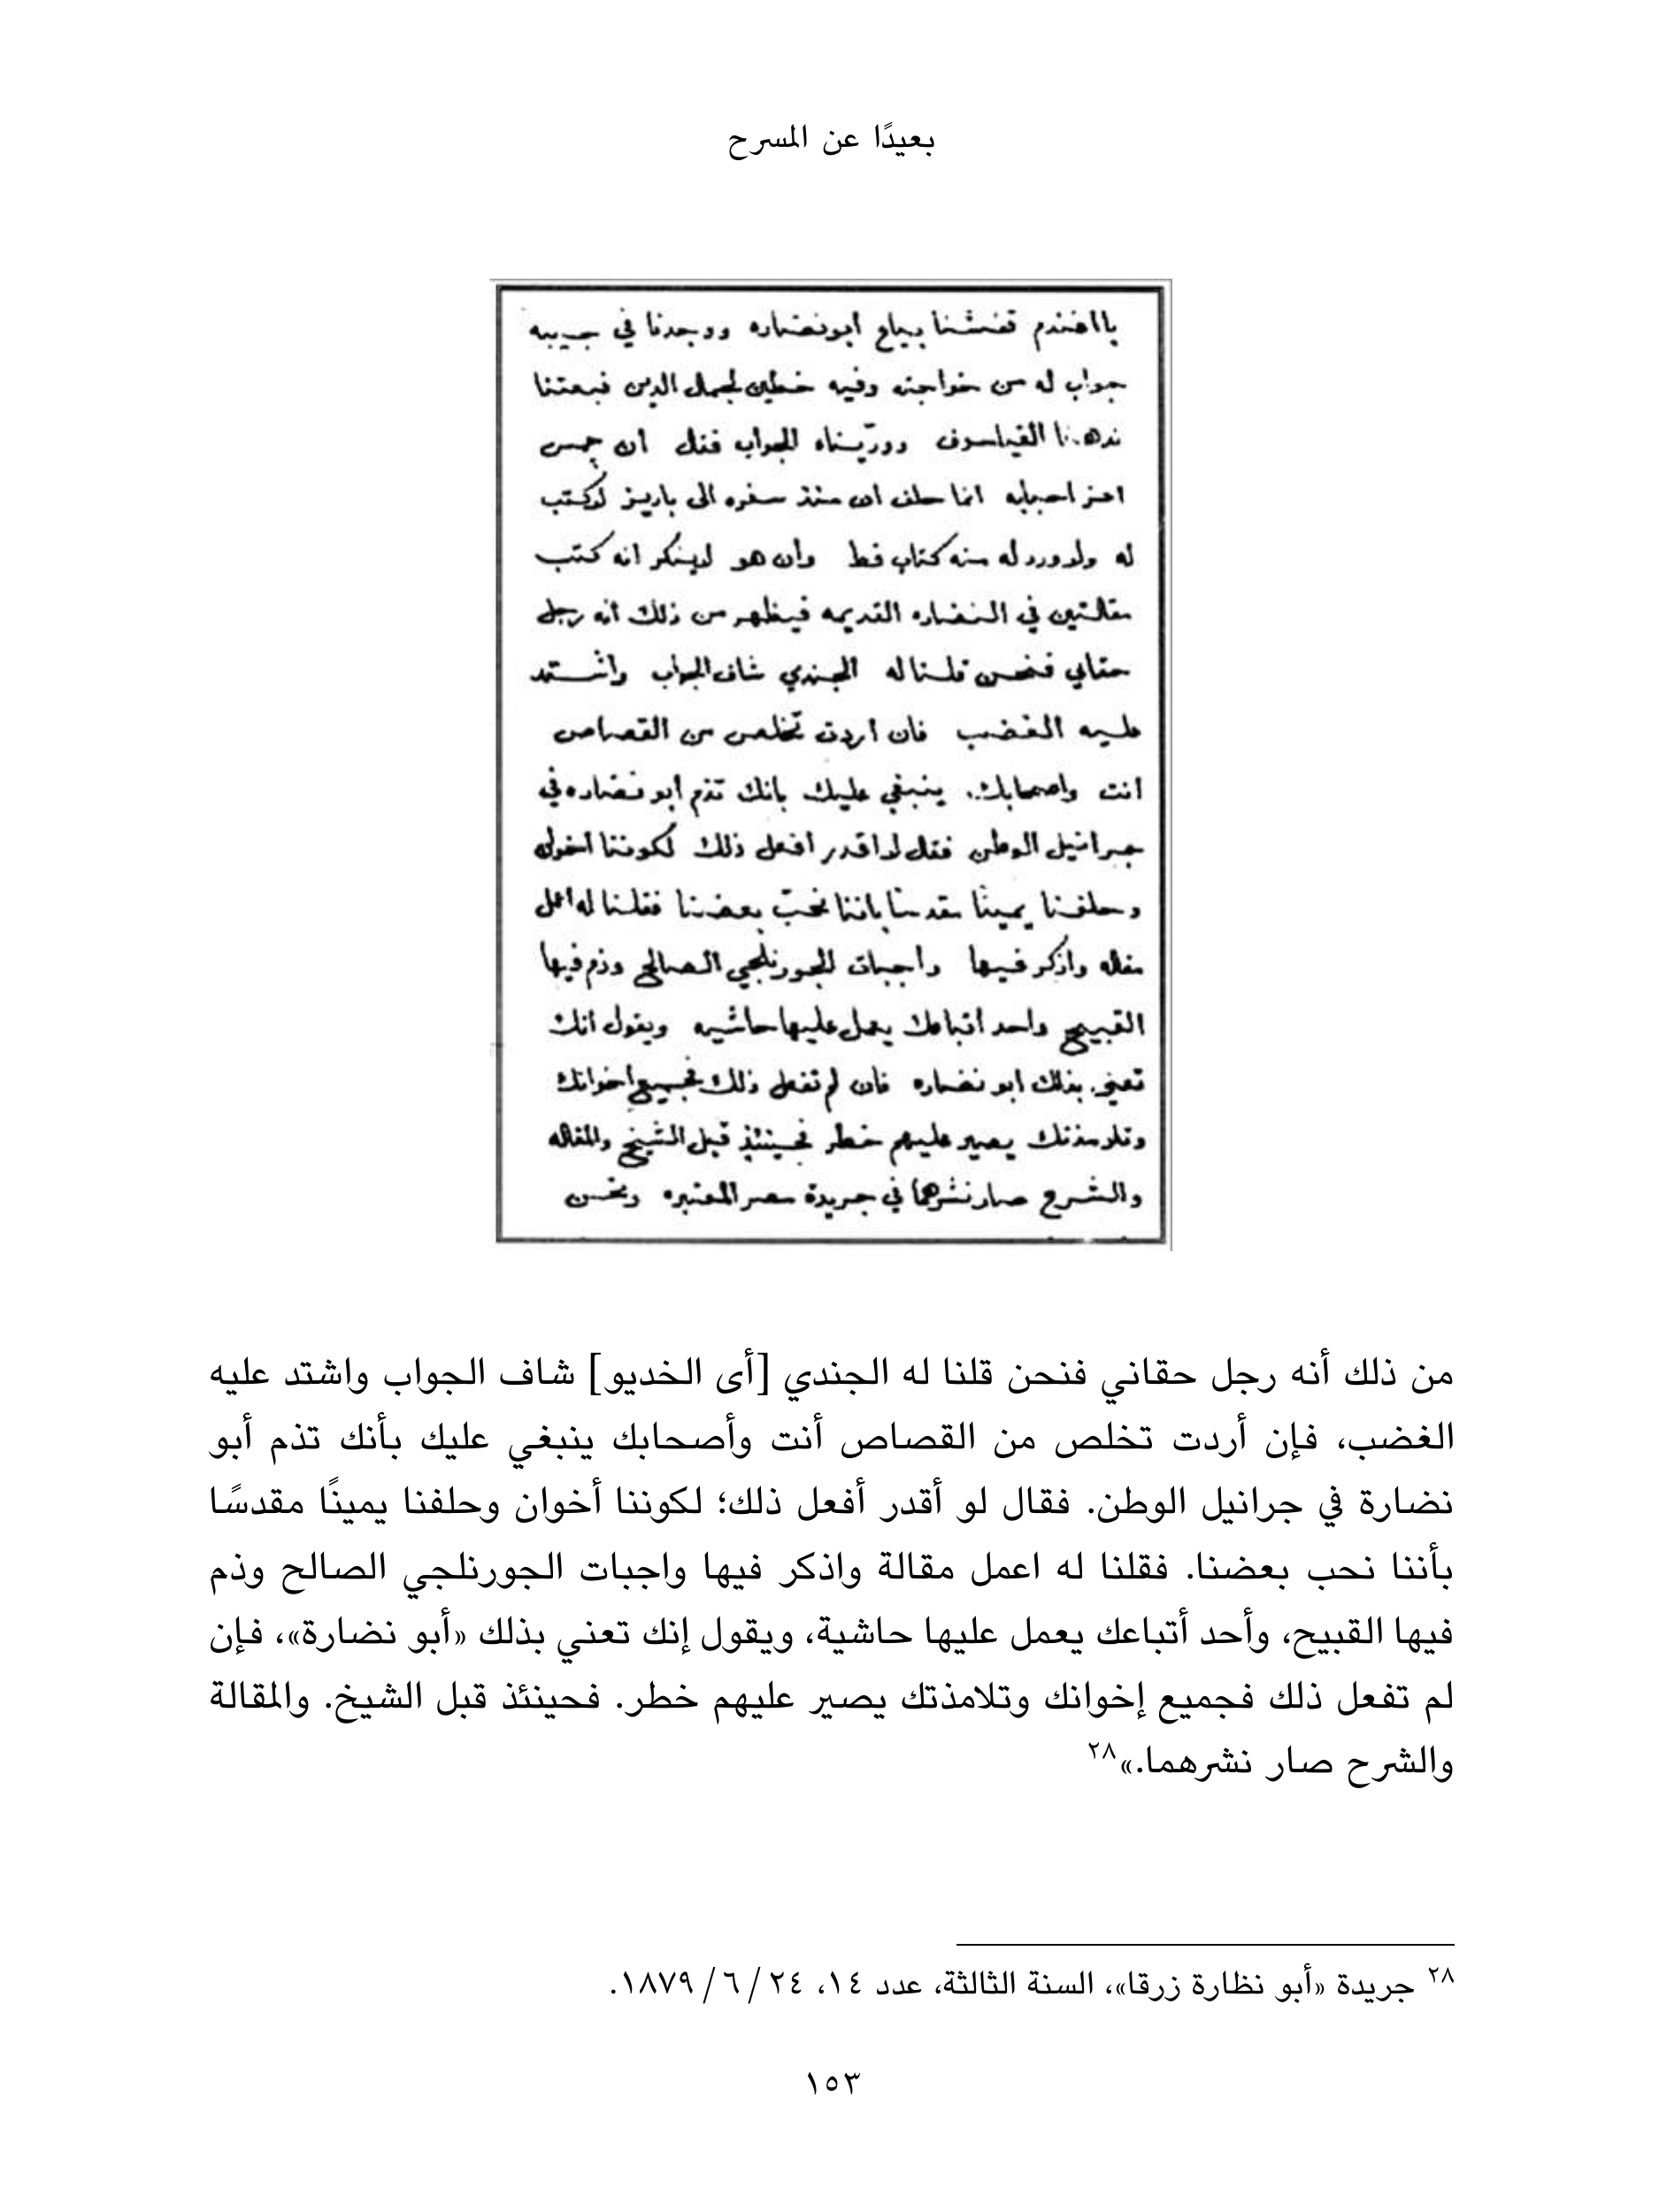 بعيدًا عن المسرح
يا افندم تفتشنا بياع ابو نضاره ووجدنا في جيبه
جواب له من خواجته وفيه خطين لجمال الدين فبعتنا
ندهنا الفيلسوف وورّيناه الجواب فقال ان جمس
اعز احبابه انما حلف ان منذ سفره الى باريز لا كتب
له ولا ورد له منه كتاب قط وان هو لا ينكر انه كتب
مقالتين في النضاره القديمه فيظهر من ذلك انه رجل
حقاني فنحن قلنا له الجندي شاف الجواب واشتد
عليه الغضب فان اردت تخلص من القصاص
انت واصحابك ينبغي عليك بانك تذم ابو نضاره في
جرانيل الوطن فقال لا اقدر افعل ذلك لكوننا اخوان
وحلفنا يمينًا مقدسًا باننا نحبّ بعضنا فقلنا له اعمل
مقاله واذكر فيها واجبات الجورنلجي الصالح وذم فيها
القبيح واحد اتباعك يعمل عليها حاشيه ويقول انك
تعني بذلك ابو نضاره فان لم تفعل ذلك فجميع اخوانك
وتلامذتك يصير عليهم خطر فحينئذٍ قبل الشيخ والمقاله
والشرح صار نشرهما في جريدة مصر المعتبره ونحن
من ذلك أنه رجل حقاني فنحن قلنا له الجندي [أى الخديو] شاف الجواب واشتد عليه
الغضب، فإن أردت تخلص من القصاص أنت وأصحابك ينبغي عليك بأنك تذم أبو
نضارة في جرانيل الوطن. فقال لو أقدر أفعل ذلك؛ لكوننا أخوان وحلفنا يمينًا مقدسًا
بأننا نحب بعضنا. فقلنا له اعمل مقالة واذكر فيها واجبات الجورنلجي الصالح وذم
فيها القبيح، وأحد أتباعك يعمل عليها حاشية، ويقول إنك تعني بذلك «أبو نضارة»، فإن
لم تفعل ذلك فجميع إخوانك وتلامذتك يصير عليهم خطر. فحينئذ قبل الشيخ. والمقالة
والشرح صار نشرهما.»٢٨
٢٨ جريدة «أبو نظارة زرقا»، السنة الثالثة، عدد ١٤، ٢٤ / ٦ / ١٨٧٩.
١٥٣